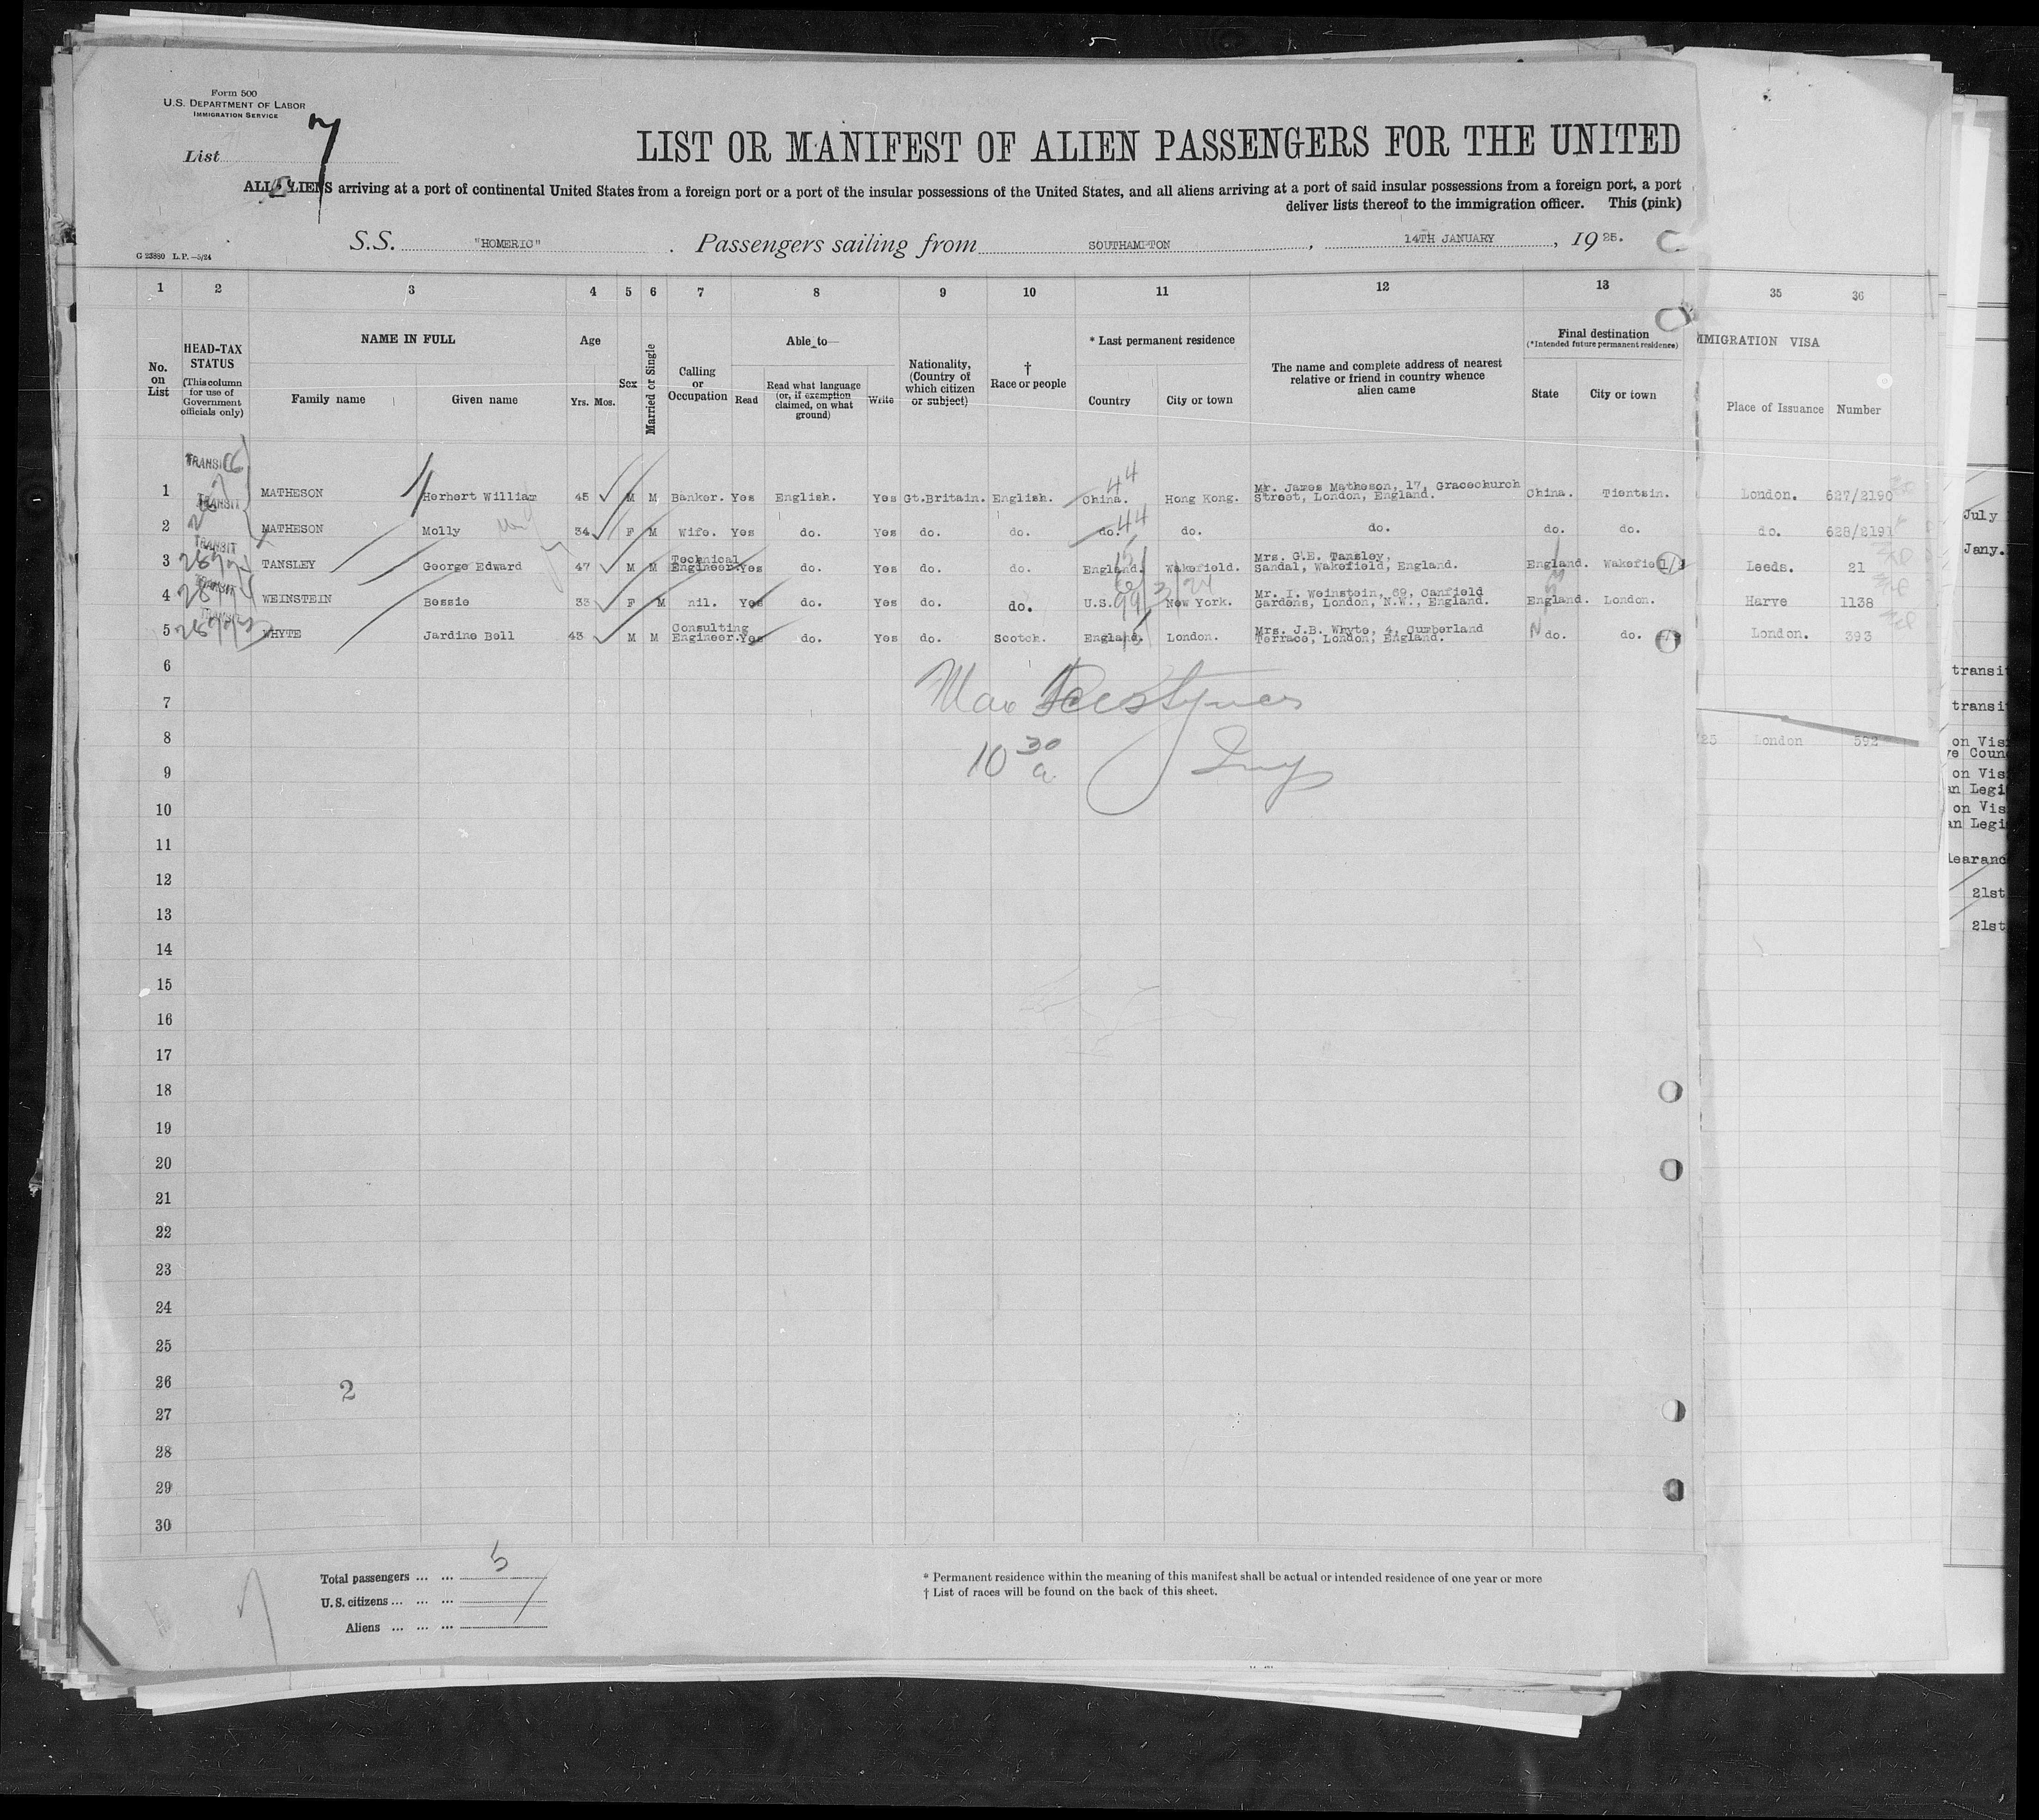 Form 500
U.S. DEPARTMENT OF LABOR
IMMIGRATION SERVICE
List 7
LIST OR MANIFEST OF ALIEN PASSENGERS FOR THE UNITED
ALL ALIENS arriving at a port of continental United States from a foreign port or a port of the insular possessions of the United States, and all aliens arriving at a port of said insular possessions from a foreign port, a port
deliver lists thereof to the immigration officer. This (pink)
S.S. "HOMERIC". Passengers sailing from SOUTHAMPTON, 14TH JANUARY, 1925.
G 23880 L.P.—5/24
1 2 3 4 5 6 7 8 9 10 11 12 13 35 36
No. on List
HEAD-TAX STATUS (This column for use of Government officials only)
NAME IN FULL
Family name Given name
Age
Yrs. Mos.
Sex
Married or Single
Calling or Occupation
Able to—
Read
Read what language (or, if exemption claimed, on what ground)
Write
Nationality, (Country of which citizen or subject)
† Race or people
* Last permanent residence
Country City or town
The name and complete address of nearest relative or friend in country whence alien came
Final destination
(*Intended future permanent residence)
State City or town
MMIGRATION VISA
Place of Issuance Number
1 TRANSIT MATHESON Herbert William 45 M M Banker. Yes English. Yes Gt.Britain. English. China. 44 Hong Kong. Mr. James Matheson, 17, Gracechurch Street, London, England. China. Tientsin. London. 627/2190
2 TRANSIT MATHESON Molly 34 F M Wife. Yes do. Yes do. do. do. 44 do. do. do. do. do. 628/2191
3 TRANSIT TANSLEY George Edward 47 M M Technical Engineer. Yes do. Yes do. do. England. Wakefield. Mrs. G.E. Tansley, Sandal, Wakefield, England. England. Wakefie Leeds. 21
4 TRANSIT WEINSTEIN Bessie 33 F M nil. Yes do. Yes do. do. U.S. New York. Mr. I. Weinstein, 69, Canfield Gardens, London, N.W., England. England. London. Harve 1138
5 TRANSIT WHYTE Jardine Bell 43 M M Consulting Engineer. Yes do. Yes do. Scotch. England. London. Mrs. J.B. Whyte, 4, Cumberland Terrace, London, England. do. do. London. 393
6
7
8
9
10
11
12
13
14
15
16
17
18
19
20
21
22
23
24
25
26
27
28
29
30
Max
10 30 a
Insp
/25 London 592
July
Jany.
transi
transi
on Vis
on Vis
an Legi
on Vis
an Legi
learanc
21st
21st
2
Total passengers ... ... 5
U.S. citizens ... ... ...
Aliens ... ... ...
* Permanent residence within the meaning of this manifest shall be actual or intended residence of one year or more
† List of races will be found on the back of this sheet.